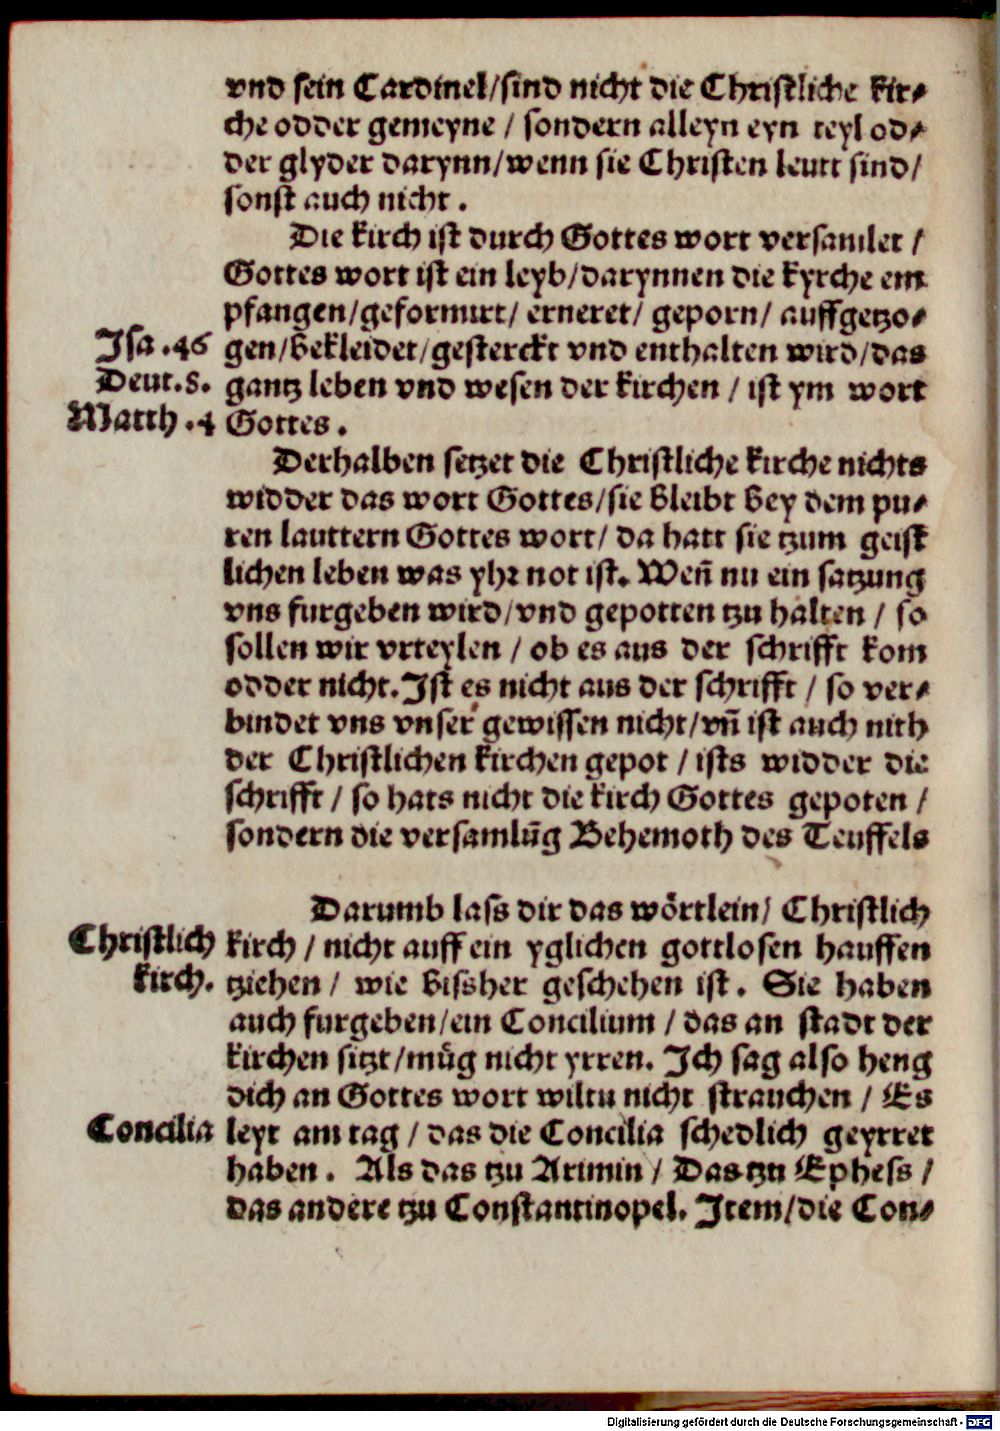 vnd sein Cardinel/sind nicht die Christliche kir⸗
che odder gemeyne / sondern alleyn eyn teyl od⸗
der glyder darynn/wenn sie Christen leutt sind/
sonst auch nicht .
Die kirch ist durch Gottes wort versamlet /
Gottes wort ist ein leyb/darynnen die kyrche em
pfangen/geformirt/ erneret/ geporn/ auffgetzo⸗
Jsa .46 gen/bekleidet/gesterckt vnd enthalten wird/das
Deut.8. gantz leben vnd wesen der kirchen / ist ym wort
Matth .4 Gottes .
Derhalben setzet die Christliche kirche nichts
widder das wort Gottes/sie bleibt bey dem pu⸗
ren lauttern Gottes wort/ da hatt sie tzum geist
lichen leben was yhr not ist. Weñ nu ein satzung
vns furgeben wird/vnd gepotten tzu halten / so
sollen wir vrteylen / ob es aus der schrifft kom
odder nicht. Jst es nicht aus der schrifft / so ver⸗
bindet vns vnser gewissen nicht/vñ ist auch nith
der Christlichen kirchen gepot / ists widder die
schrifft / so hats nicht die kirch Gottes gepoten /
sondern die versamlũg Behemoth des Teuffels
Darumb lass dir das wörtlein/ Christlich
Christlich kirch / nicht auff ein yglichen gottlosen hauffen
kirch. tziehen / wie bissher geschehen ist . Sie haben
auch furgeben/ein Concilium / das an stadt der
kirchen sitzt/müg nicht yrren. Jch sag also heng
dich an Gottes wort wiltu nicht strauchen / Es
Concilia leyt am tag / das die Concilia schedlich geyrret
haben . Als das tzu Arimin / Das tzu Ephess /
das andere tzu Constantinopel. Jtem/die Con⸗
Digitalisierung gefördert durch die Deutsche Forschungsgemeinschaft - DFG